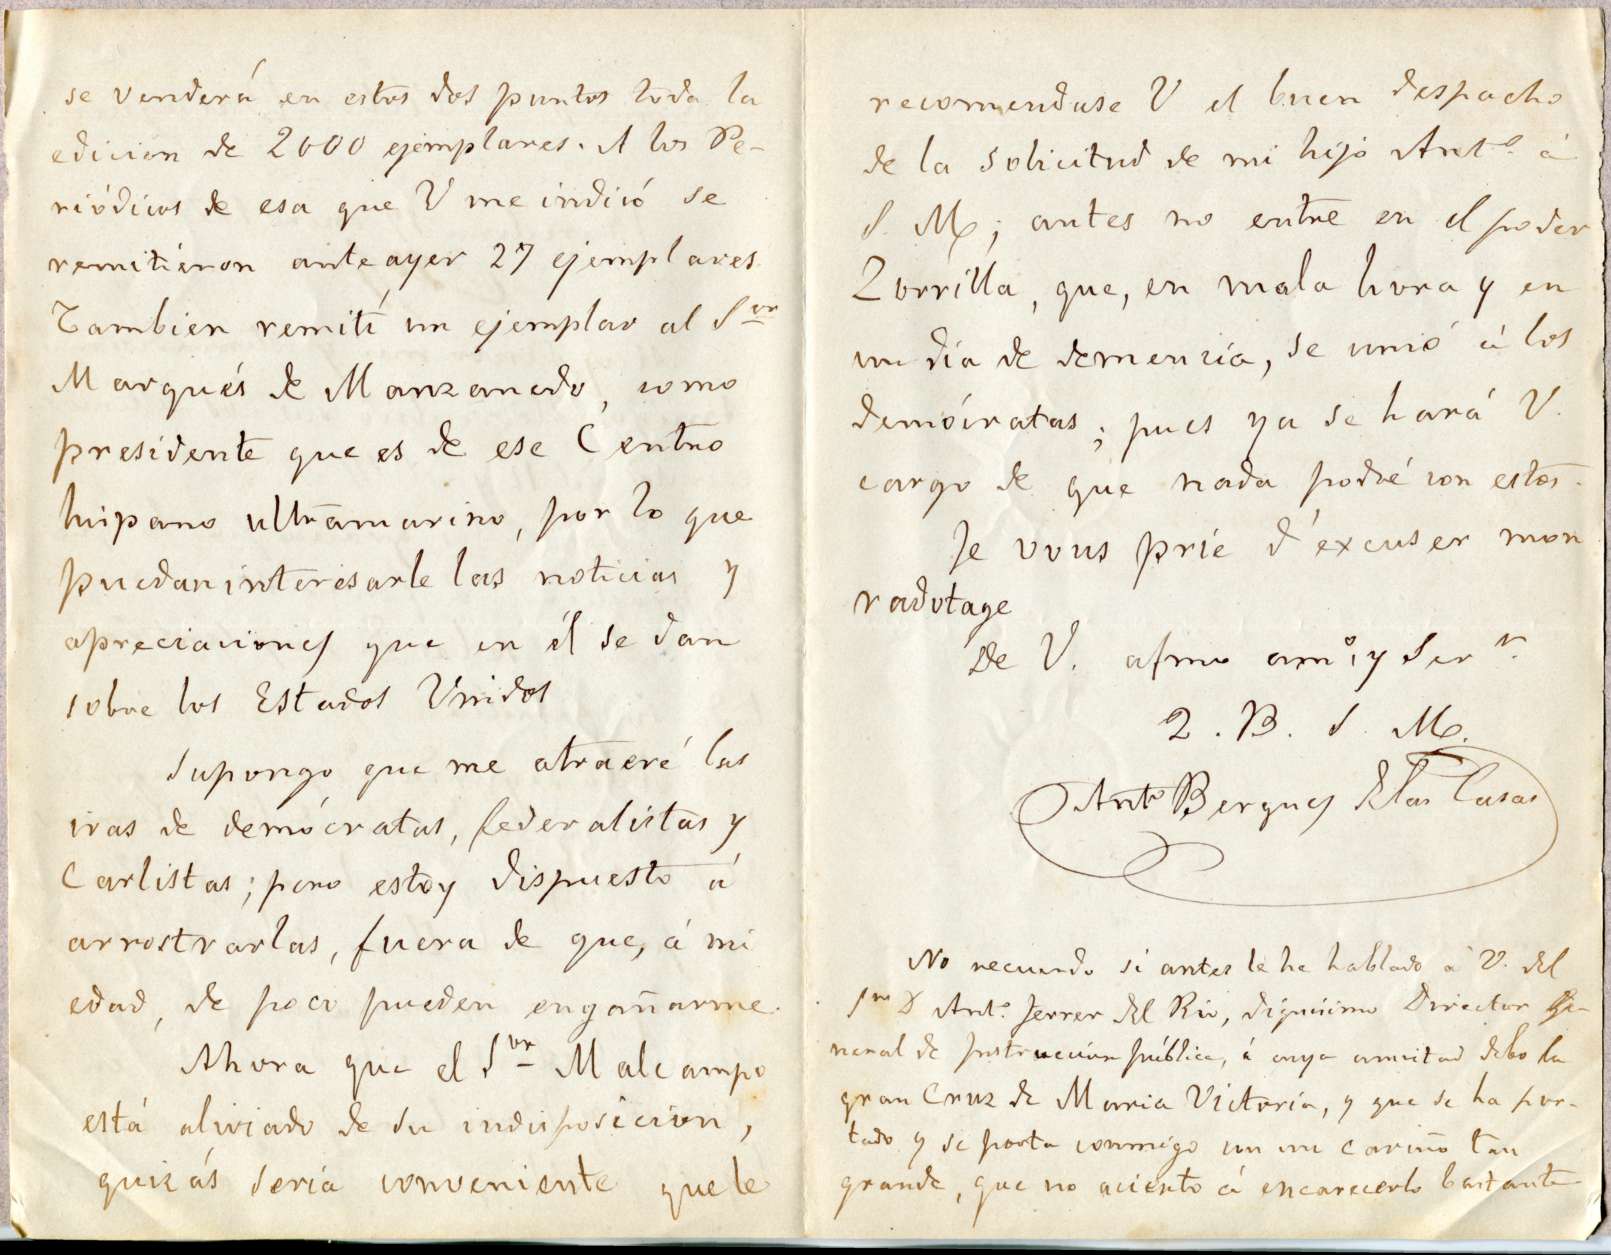 se venderá en estos dos puntos toda la
edicion de 2000 ejemplares. A los Pe-
riódicos de esa que V me indicó se
remitiéron anteayer 27 ejemplares.
Tambien remití un ejemplar al Sor
Marqués de Manzanedo, como
presidente que es de ese Centro
hispano ultramarino, por lo que
puedan interesarle las noticias y
apreciaciones que en él se dan
sobre los Estados Unidos
Supongo que me atraeré las
iras de demócratas, federalistas y
Carlistas; pero estoy dispuesto á
arrostrarlas, fuera de que, á mi
edad, de poco pueden engañarme.
Ahora que el Sor Malcampo
está aliviado de su indisposicion,
quizás seria conveniente que le
recomendase V el buen despacho
de la solicitud de mi hijo Anto. á
S. M; antes no entre en el poder
Zorrilla, que, en mala hora y en
un dia de demencia, se unió á los
demócratas; pues ya se hará V.
cargo de que nada podré con estos.
Je vous prie d'éxcuser mon
radotage
De V. afmo amo. y Serr.
Q. B. S. M.
Anto Bergnes de las Casas
No recuerdo si antes le he hablado á V. del
Sor D Anto. Ferrer del Rio, dignísimo Director Ge-
neral de Instruccion pública, á cuya amistad debo la
gran Cruz de Maria Victoria, y que se ha por-
tado y se porta conmigo con un cariño tan
grande, que no acierto á encarecerlo bastante